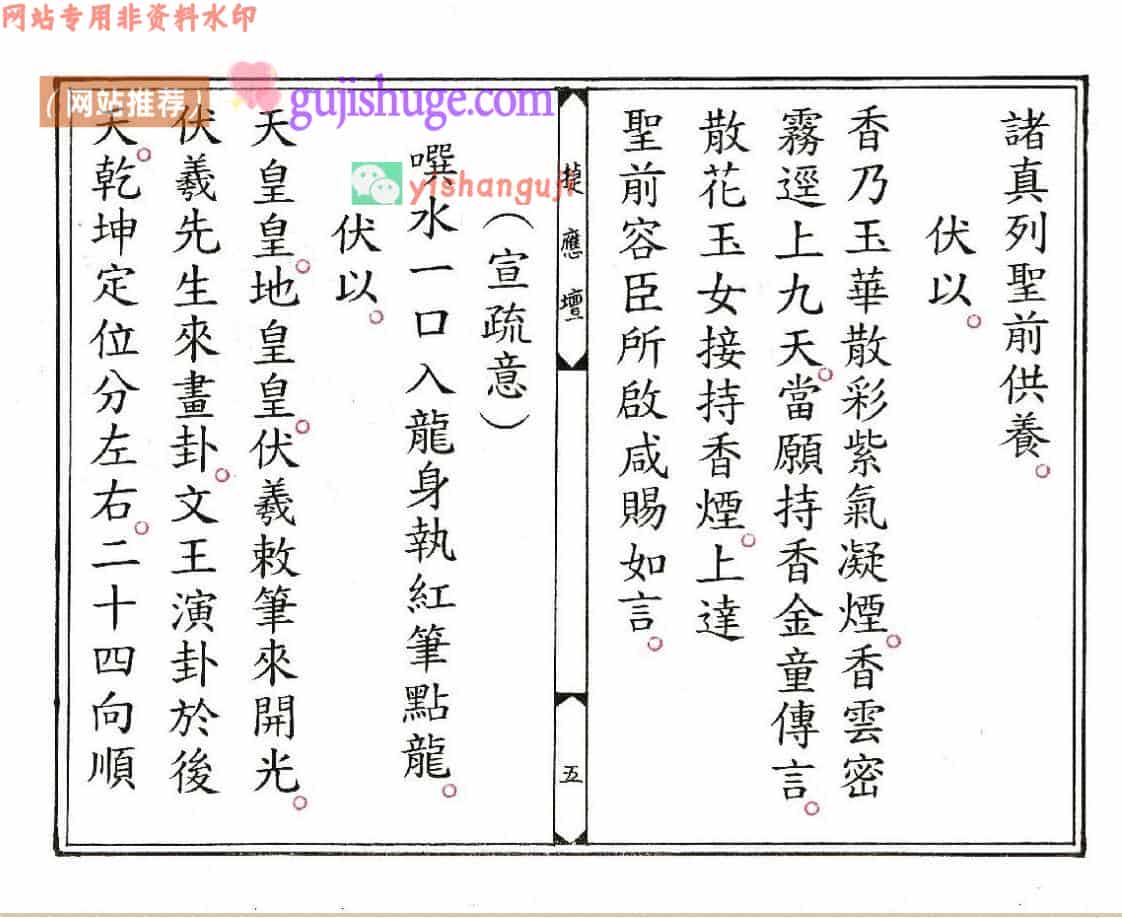 网站专用非资料水印
（网站推荐）
gujishuge.com
yishanguji
諸真列聖前供養。
伏以。
香乃玉華散彩紫氣凝煙。香雲密
霧逕上九天。當願持香金童傳言。
散花玉女接持香煙。上達
聖前容臣所啟咸賜如言。
應壇
五
（宣疏意）
噀水一口入龍身執紅筆點龍。
伏以。
天皇皇。地皇皇。伏羲敕筆來開光。
伏羲先生來畫卦。文王演卦於後
天。乾坤定位分左右。二十四向順